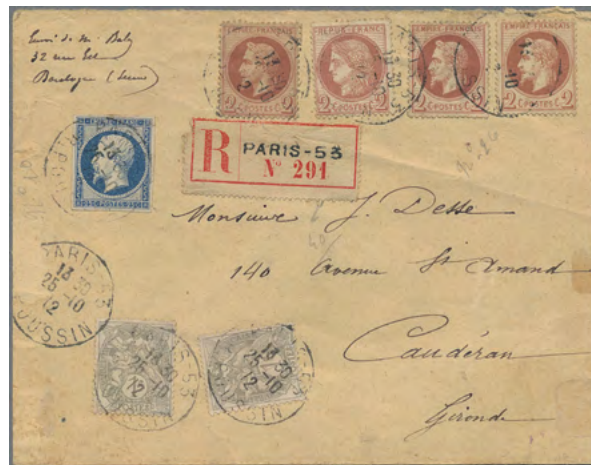 Envoi de Mr Baly
32 rue
Boulogne (Seine)
EMPIRE FRANÇAIS
2 C. POSTES 2 C.
REPUB. FRANC.
2 C. POSTES 2 C.
EMPIRE FRANÇAIS
2 C. POSTES 2 C.
EMPIRE FRANÇAIS
2 C. POSTES 2 C.
R
PARIS-53
Nº 291
25 C. POSTES 25 C.
Monsieur J. Desse
140 Avenue St Amand
Caudéran
Gironde
PARIS-53
13 30
25-10
12
POUSSIN
PARIS-53
13 30
25-10
12
POUSSIN
13 30
25-10
12
POUSSIN